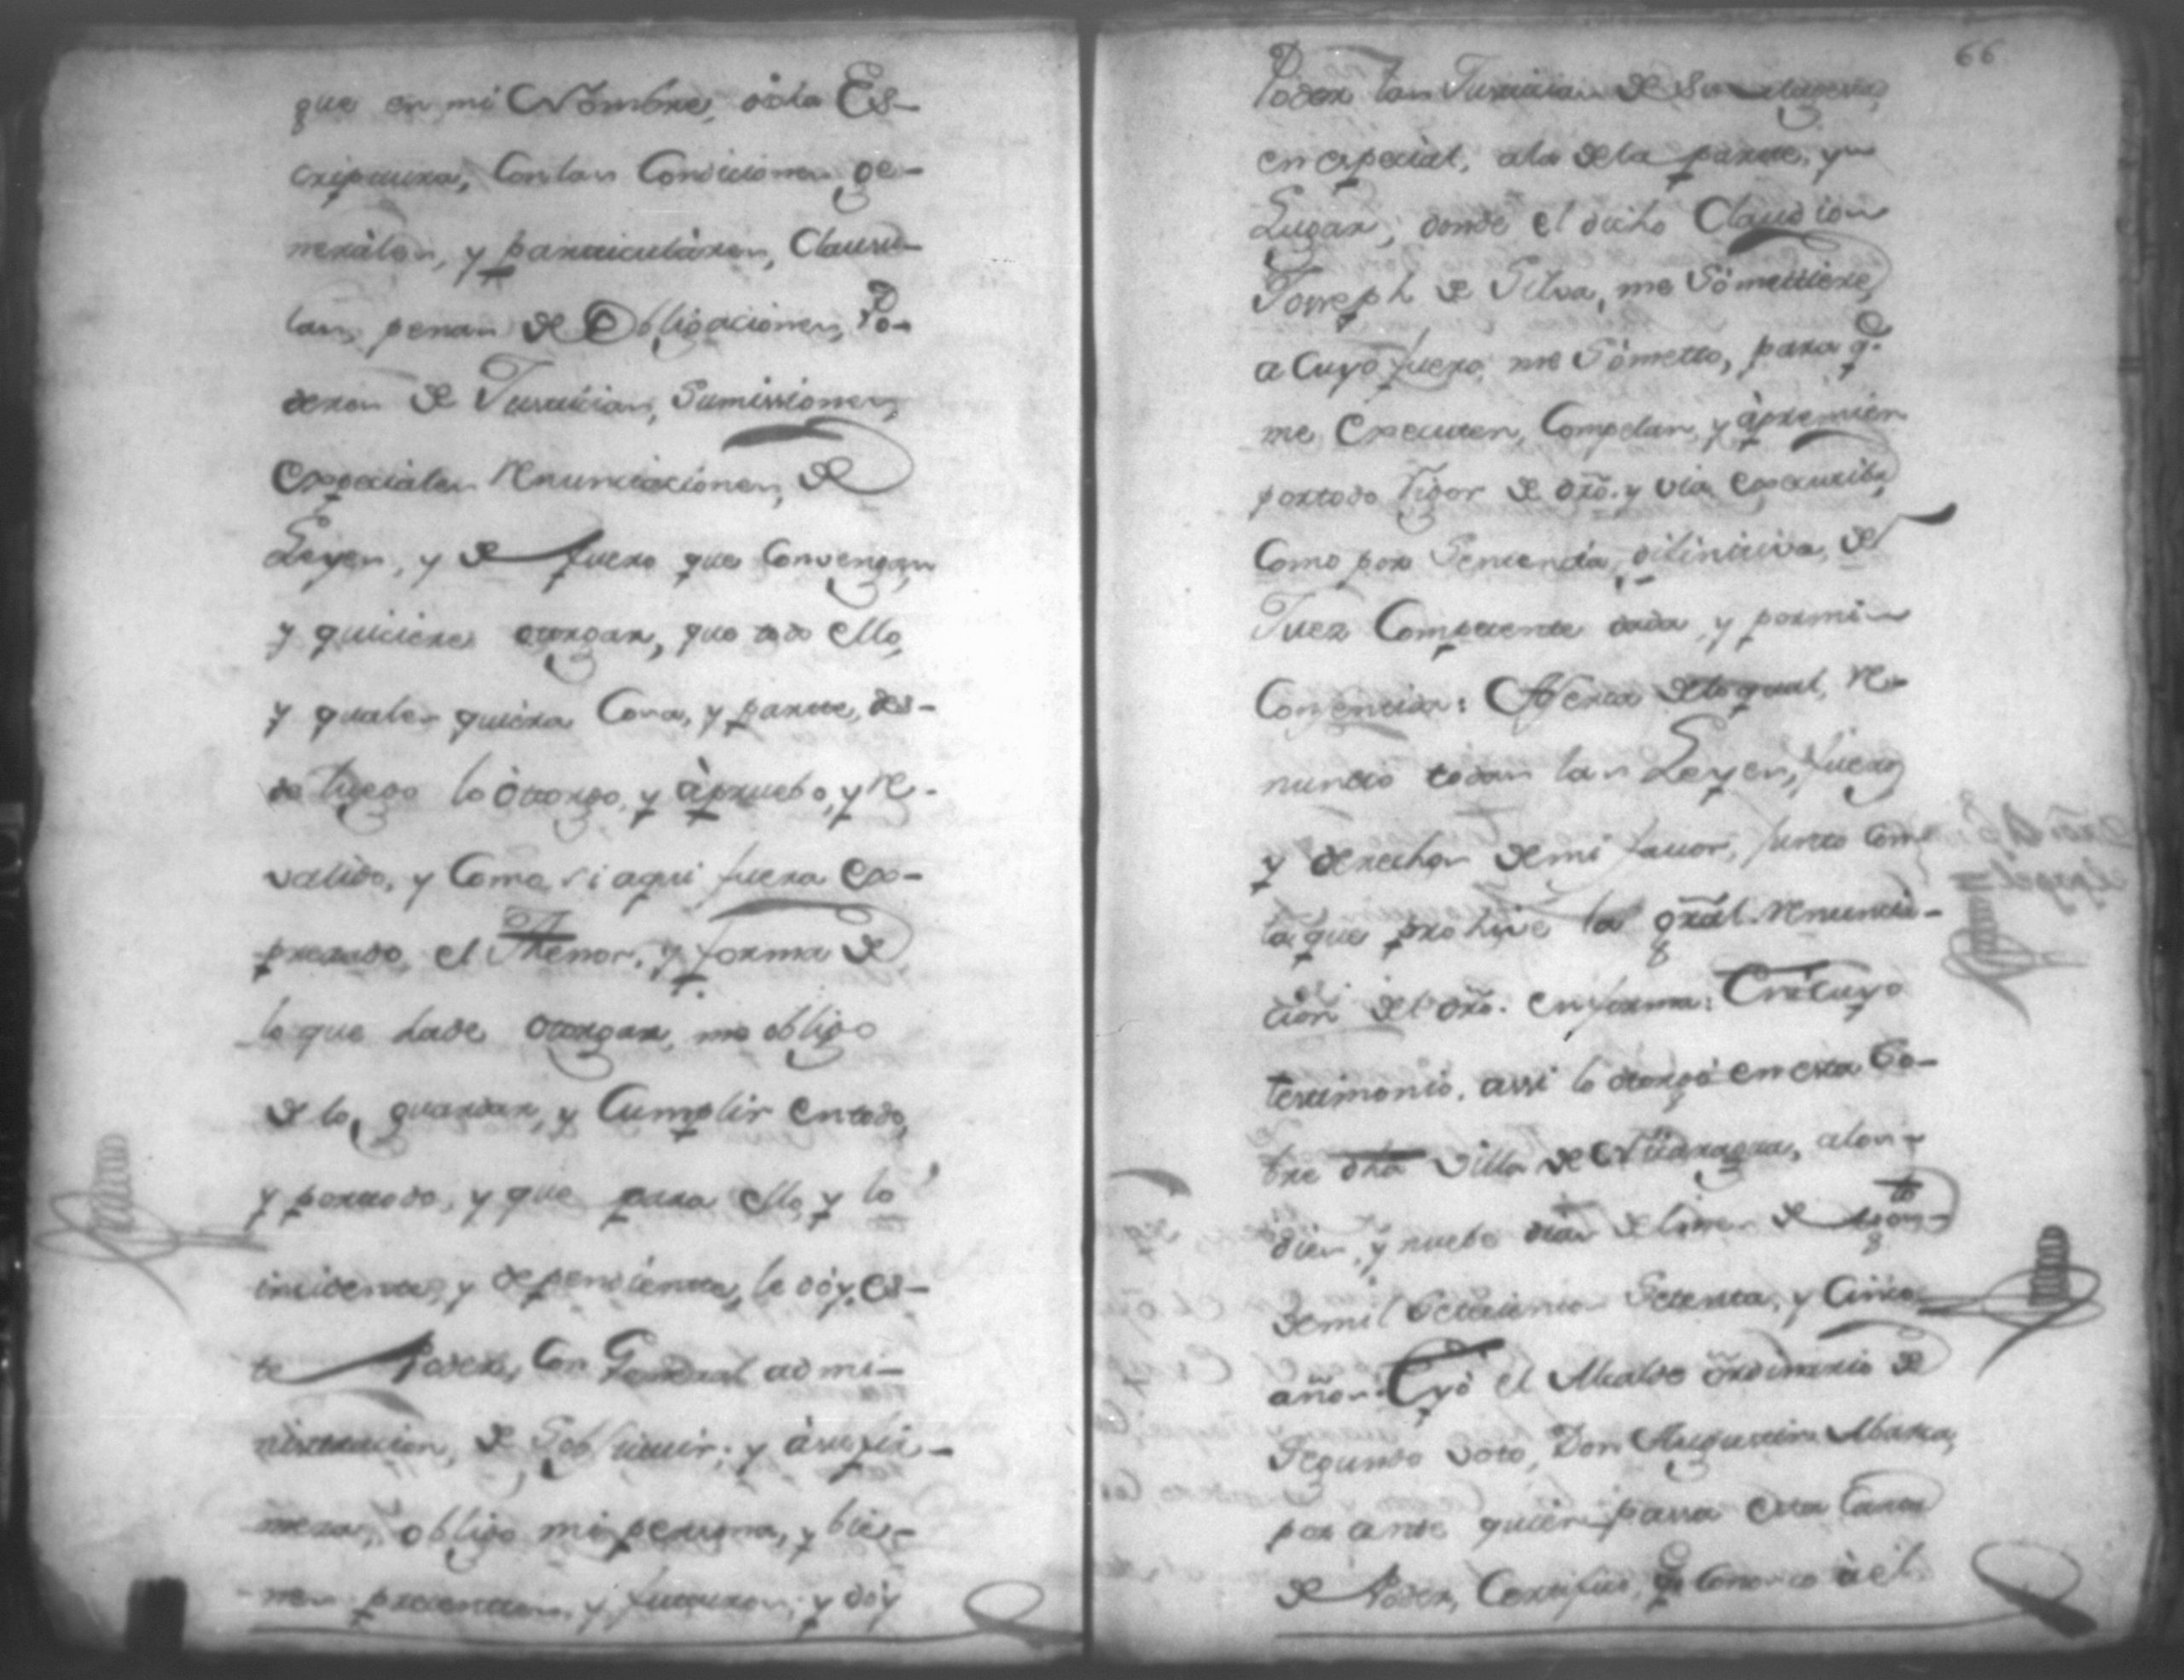 que en mi Nombre, ôdla Es-
criptura, Con las Condiciones ge-
nerâles, y particulâres, Clausu-
las, penas de Obligaciones, Po-
deres de Justicias, Sumissiones,
Especiales renunciaciones, de
Leyes, y de fuero que Convengan
y quiciere otorgar, que todo ello,
y quales quiera Cosa, y parte, des-
de luego lo ôtorgo, y âpruebo, y re-
valido, y Como si aqui fuera Ex-
presado, el Thenor, y forma de
lo que hade otorgar, me obligo
de lo, guardar, y Cumplir en todo,
y portodo, y que para ello, y lo
incidente, y dependiente, le dòy, es-
te Poder, Con General admi-
nistracion, de Sobstituir; y àsu fir-
meza, obligo mi persona, y bie-
nes presentes, y futuros; y dòy
66
Poder las Justicias de Su Magestad,
en especial, ala dela parte, y
Lugar, donde el dicho Claudio
Joseph de Silva, me Sometiere,
a Cuyo fuero me Sometto, para q.e
me Executen, Compelan, y àpremien
portodo rigor de dro. y via executiba,
Como por Sentencia, difinitiva, de
Juez Competente dada, y por mi
Consentida: Cerca delo qual, re-
nuncio todas las Leyes, fuero,
y derechos demi favor, junto Con
la que prohive la gral. renuncia-
cion del dro. en forma: En Cuyo
testimonio, assi lo otorgó en esta So-
bre dha Villa de Nicaragua, alos
dies, y nuebe dias del mes de Agto
demil Setecientos Setenta, y Cinco
años. E yò el Alcalde òrdinario de
Segundo voto, Don Augustin Abarca,
por ante quien passa esta Carta
de Poder, Certifico, q. Conosco à el